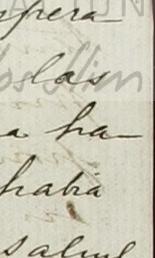 spera
las
a ha-
habia
salud